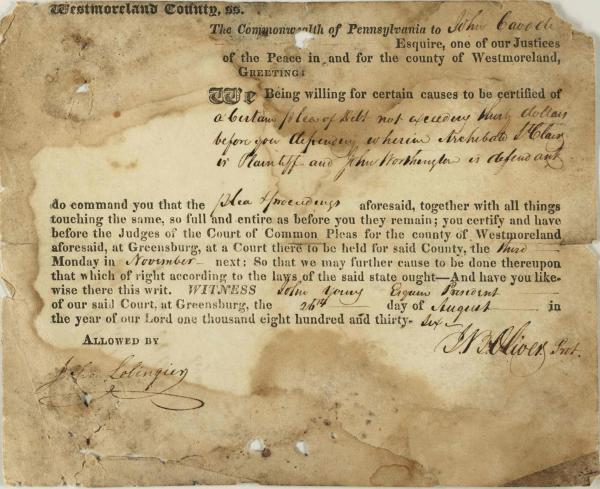 Westmoreland County, ss.
The Commonwealth of Pennsylvania to John Cavode
Esquire, one of our Justices
of the Peace in and for the county of Westmoreland,
GREETING:
We Being willing for certain causes to be certified of
a Certain plea of Debt not exceeding thirty dollars
before you depending wherein Archibald St Clair
is Plaintiff and John Worthington is defendant
do command you that the plea & proceedings aforesaid, together with all things
touching the same, so full and entire as before you they remain; you certify and have
before the Judges of the Court of Common Pleas for the county of Westmoreland
aforesaid, at Greensburg, at a Court there to be held for said County, the third
Monday in November next: So that we may further cause to be done thereupon
that which of right according to the laws of the said state ought—And have you like-
wise there this writ. WITNESS John Young Esquire President
of our said Court, at Greensburg, the 26th day of August in
the year of our Lord one thousand eight hundred and thirty- six
ALLOWED BY
J. B. Oliver, Prot.
Lobingier